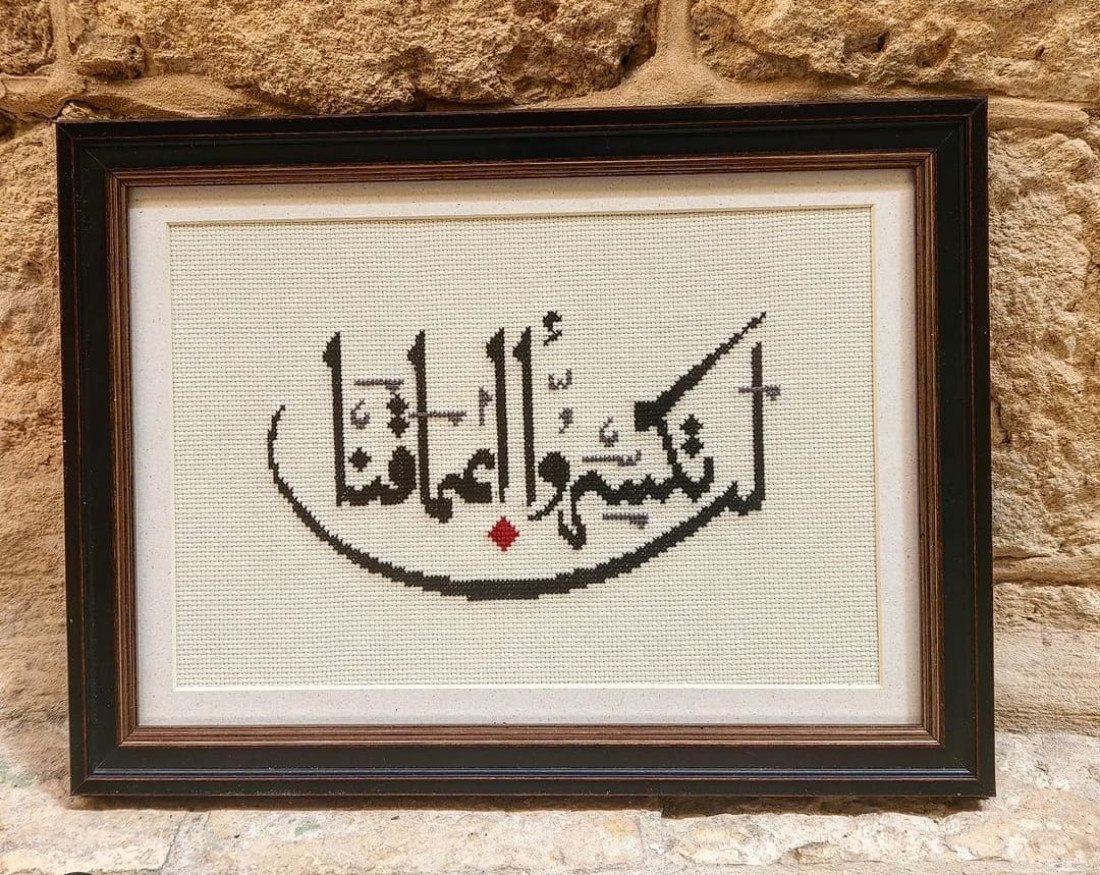 لن تكسروا أعماقنا